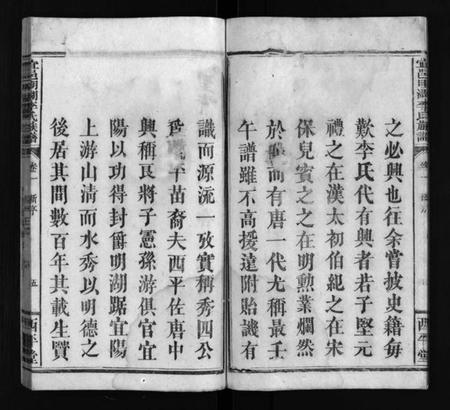 之必興也往余嘗披史籍每
歎李氏代有興者若子堅元
禮之在漢太初伯紀之在宋
保兒賓之之在明勲業爛然
於而有唐一代尤稱最王
午譜雖不高援遠附貽譏有
識而源流一攷實稱秀四公
平苗裔夫西平佐唐中
興稱艮將子憲孫游俱官宜
陽以功得封爵明湖踞宜陽
上游山清而水秀以明德之
後居其間數百年其載生賢
宜邑明湖李氏族譜
卷一
新序
五
西平堂